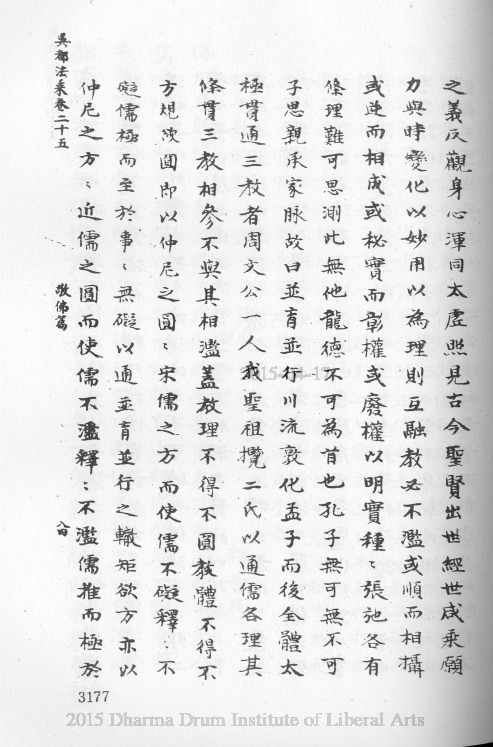 之義反觀身心渾同太虛照見古今聖賢出世經世咸乘願
力與時變化以妙用以為理則互融教必不濫或順而相攝
或逆而相成或秘實而彰權或廢權以明實種〻張弛各有
條理難可思測此無他龍德不可為首也孔子無可無不可
子思親承家脉故曰並育並行川流敦化孟子而後全體太
極貫通三教者周文公一人我聖祖攬二氏以通儒各理其
條貫三教相參不與其相濫蓋教理不得不圓教體不得不
方規欲圓即以仲尼之圓〻宋儒之方而使儒不礙釋〻不
礙儒極而至於事〻無礙以通並育並行之轍矩欲方亦以
仲尼之方〻近儒之圓而使儒不濫釋〻不濫儒推而極於
吳都法乘卷二十五
敬佛篇
3177
2015 Dharma Drum Institute of Liberal Arts